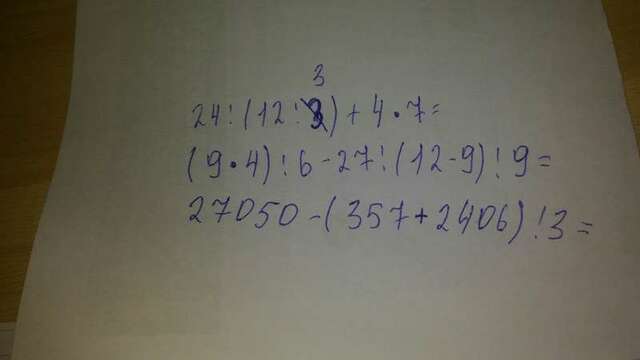 3
24:(12:3)+4·7=
(9·4):6-27:(12-9):9=
27050-(357+2406):3=